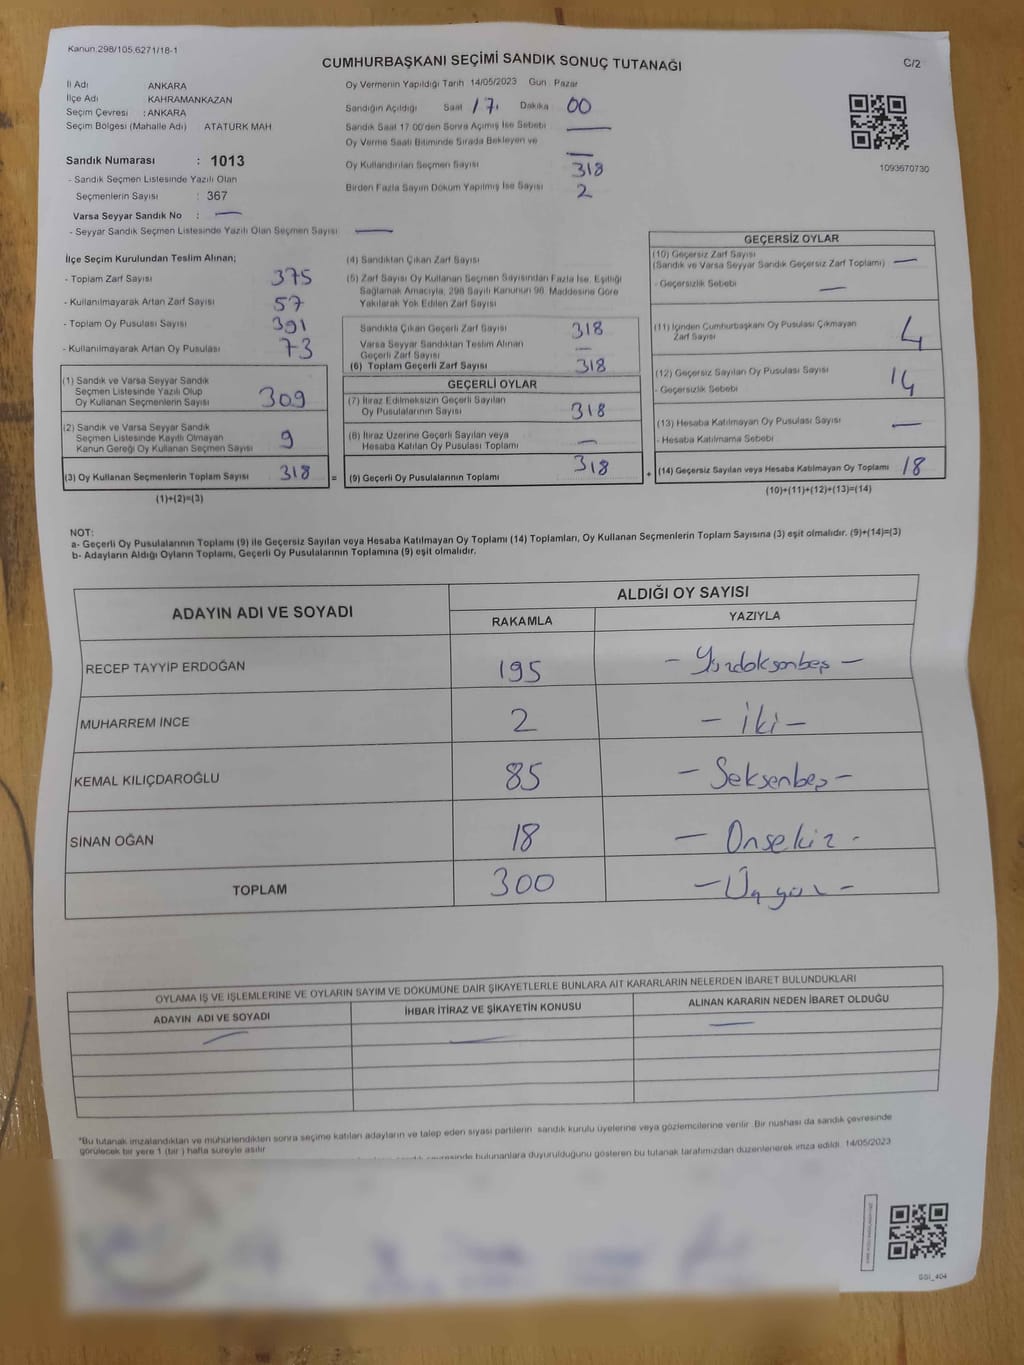 Kanun.298/105.6271/18-1
CUMHURBAŞKANI SEÇİMİ SANDIK SONUÇ TUTANAĞI
C/2
İl Adı ANKARA
İlçe Adı KAHRAMANKAZAN
Seçim Çevresi : ANKARA
Seçim Bölgesi (Mahalle Adı) ATATÜRK MAH
Oy Vermenin Yapıldığı Tarih 14/05/2023 Gün Pazar
Sandığın Açıldığı Saat 17. Dakika 00
Sandık Saat 17 00'den Sonra Açımış İse Sebebi —
Oy Verme Saati Bitiminde Sırada Bekleyen ve —
Oy Kullandırılan Seçmen Sayısı 318
Birden Fazla Sayım Döküm Yapılmış İse Sayısı 2
1093670730
Sandık Numarası : 1013
- Sandık Seçmen Listesinde Yazılı Olan
Seçmenlerin Sayısı : 367
Varsa Seyyar Sandık No : —
- Seyyar Sandık Seçmen Listesinde Yazılı Olan Seçmen Sayısı —
İlçe Seçim Kurulundan Teslim Alınan;
- Toplam Zarf Sayısı 375
- Kullanılmayarak Artan Zarf Sayısı 57
- Toplam Oy Pusulası Sayısı 391
- Kullanılmayarak Artan Oy Pusulası 73
(1) Sandık ve Varsa Seyyar Sandık
Seçmen Listesinde Yazılı Olup
Oy Kullanan Seçmenlerin Sayısı 309
(2) Sandık ve Varsa Seyyar Sandık
Seçmen Listesinde Kayıtlı Olmayan
Kanun Gereği Oy Kullanan Seçmen Sayısı 9
(3) Oy Kullanan Seçmenlerin Toplam Sayısı 318
(1)+(2)=(3)
(4) Sandıktan Çıkan Zarf Sayısı
(5) Zarf Sayısı Oy Kullanan Seçmen Sayısından Fazla İse, Eşitliği
Sağlamak Amacıyla, 298 Sayılı Kanunun 98. Maddesine Göre
Yakılarak Yok Edilen Zarf Sayısı
Sandıkta Çıkan Geçerli Zarf Sayısı 318
Varsa Seyyar Sandıktan Teslim Alınan
Geçerli Zarf Sayısı —
(6) Toplam Geçerli Zarf Sayısı 318
GEÇERLİ OYLAR
(7) İtiraz Edilmeksizin Geçerli Sayılan
Oy Pusulalarının Sayısı 318
(8) İtiraz Üzerine Geçerli Sayılan veya
Hesaba Katılan Oy Pusulası Toplamı —
= (9) Geçerli Oy Pusulalarının Toplamı 318
GEÇERSİZ OYLAR
(10) Geçersiz Zarf Sayısı
(Sandık ve Varsa Seyyar Sandık Geçersiz Zarf Toplamı) —
- Geçersizlik Sebebi —
(11) İçinden Cumhurbaşkanı Oy Pusulası Çıkmayan
Zarf Sayısı 4
(12) Geçersiz Sayılan Oy Pusulası Sayısı 14
- Geçersizlik Sebebi
(13) Hesaba Katılmayan Oy Pusulası Sayısı —
- Hesaba Katılmama Sebebi
+ (14) Geçersiz Sayılan veya Hesaba Katılmayan Oy Toplamı 18
(10)+(11)+(12)+(13)=(14)
NOT:
a- Geçerli Oy Pusulalarının Toplamı (9) ile Geçersiz Sayılan veya Hesaba Katılmayan Oy Toplamı (14) Toplamları, Oy Kullanan Seçmenlerin Toplam Sayısına (3) eşit olmalıdır. (9)+(14)=(3)
b- Adayların Aldığı Oyların Toplamı, Geçerli Oy Pusulalarının Toplamına (9) eşit olmalıdır.
ADAYIN ADI VE SOYADI
ALDIĞI OY SAYISI
RAKAMLA YAZIYLA
RECEP TAYYİP ERDOĞAN 195 - Yüzdoksanbeş -
MUHARREM İNCE 2 - İki -
KEMAL KILIÇDAROĞLU 85 - Seksenbeş -
SİNAN OĞAN 18 - Onsekiz -
TOPLAM 300 - Üçyüz -
OYLAMA İŞ VE İŞLEMLERİNE VE OYLARIN SAYIM VE DÖKÜMÜNE DAİR ŞİKAYETLERLE BUNLARA AİT KARARLARIN NELERDEN İBARET BULUNDUKLARI
ADAYIN ADI VE SOYADI İHBAR İTİRAZ VE ŞİKAYETİN KONUSU ALINAN KARARIN NEDEN İBARET OLDUĞU
— — —
*Bu tutanak imzalandıktan ve mühürlendikten sonra seçime katılan adayların ve talep eden siyasi partilerin sandık kurulu üyelerine veya gözlemcilerine verilir. Bir nushası da sandık çevresinde
görülecek bir yere 1 (bir ) hafta süreyle asılır
bulunanlara duyurulduğunu gösteren bu tutanak tarafımızdan düzenlenerek imza edildi. 14/05/2023